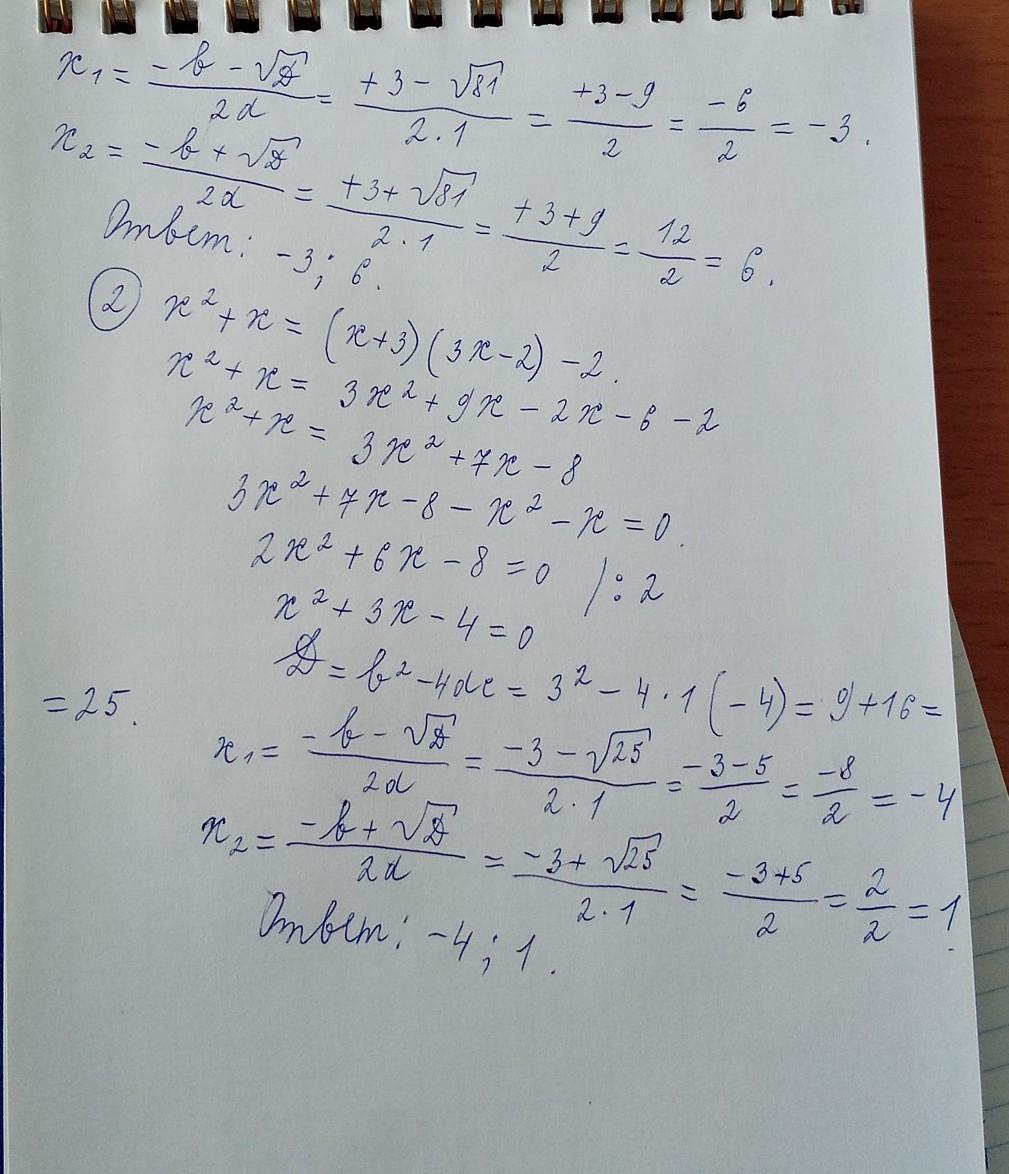 x₁ = (-b - √D)/(2a) = (+3 - √81)/(2·1) = (+3-9)/2 = -6/2 = -3.
x₂ = (-b + √D)/(2a) = (+3 + √81)/(2·1) = (+3+9)/2 = 12/2 = 6.
Ответ: -3; 6.
② x² + x = (x+3)(3x-2) - 2.
x² + x = 3x² + 9x - 2x - 6 - 2
x² + x = 3x² + 7x - 8
3x² + 7x - 8 - x² - x = 0.
2x² + 6x - 8 = 0 /: 2
x² + 3x - 4 = 0
D = b² - 4ac = 3² - 4·1(-4) = 9 + 16 =
= 25.
x₁ = (-b - √D)/(2a) = (-3 - √25)/(2·1) = (-3-5)/2 = -8/2 = -4
x₂ = (-b + √D)/(2a) = (-3 + √25)/(2·1) = (-3+5)/2 = 2/2 = 1.
Ответ: -4; 1.